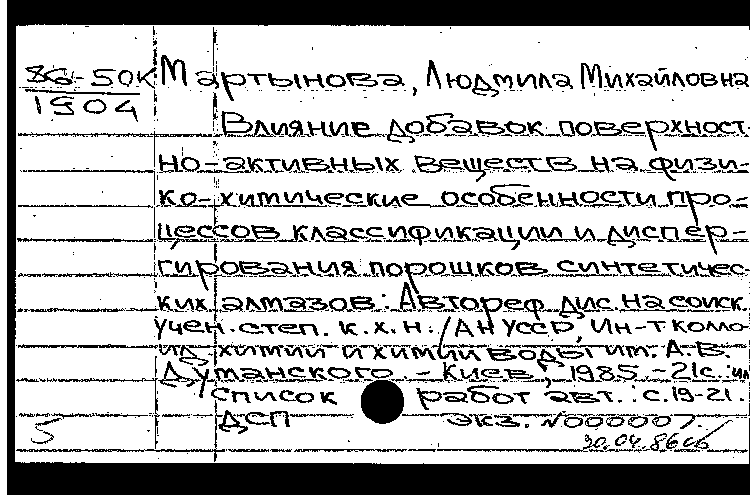 86-50К
1904
Мартынова, Людмила Михайловна
Влияние добавок поверхност-
но-активных веществ на физи-
ко-химические особенности про-
цессов классификации и диспер-
гирования порошков синтетичес
ких алмазов: Автореф дис. на соиск.
учен. степ. к. х. н. /АН УССР, Ин-т колло
ид. химии и химии воды им. А. В.
Думанского. - Киев, 1985. - 21с.: ил
Список работ авт.: с. 19-21.
ДСП экз. N000007.
5
30.04.86